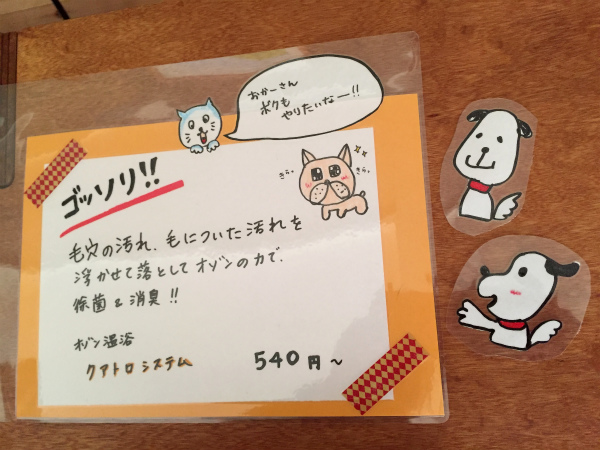 おかーさん
ボクも
やりたいなー!!
ゴッソリ!!
きら・
きら・
毛穴の汚れ、毛についた汚れを
浮かせて落としてオゾンの力で、
除菌&消臭!!
オゾン温浴
クアトロシステム
540円~